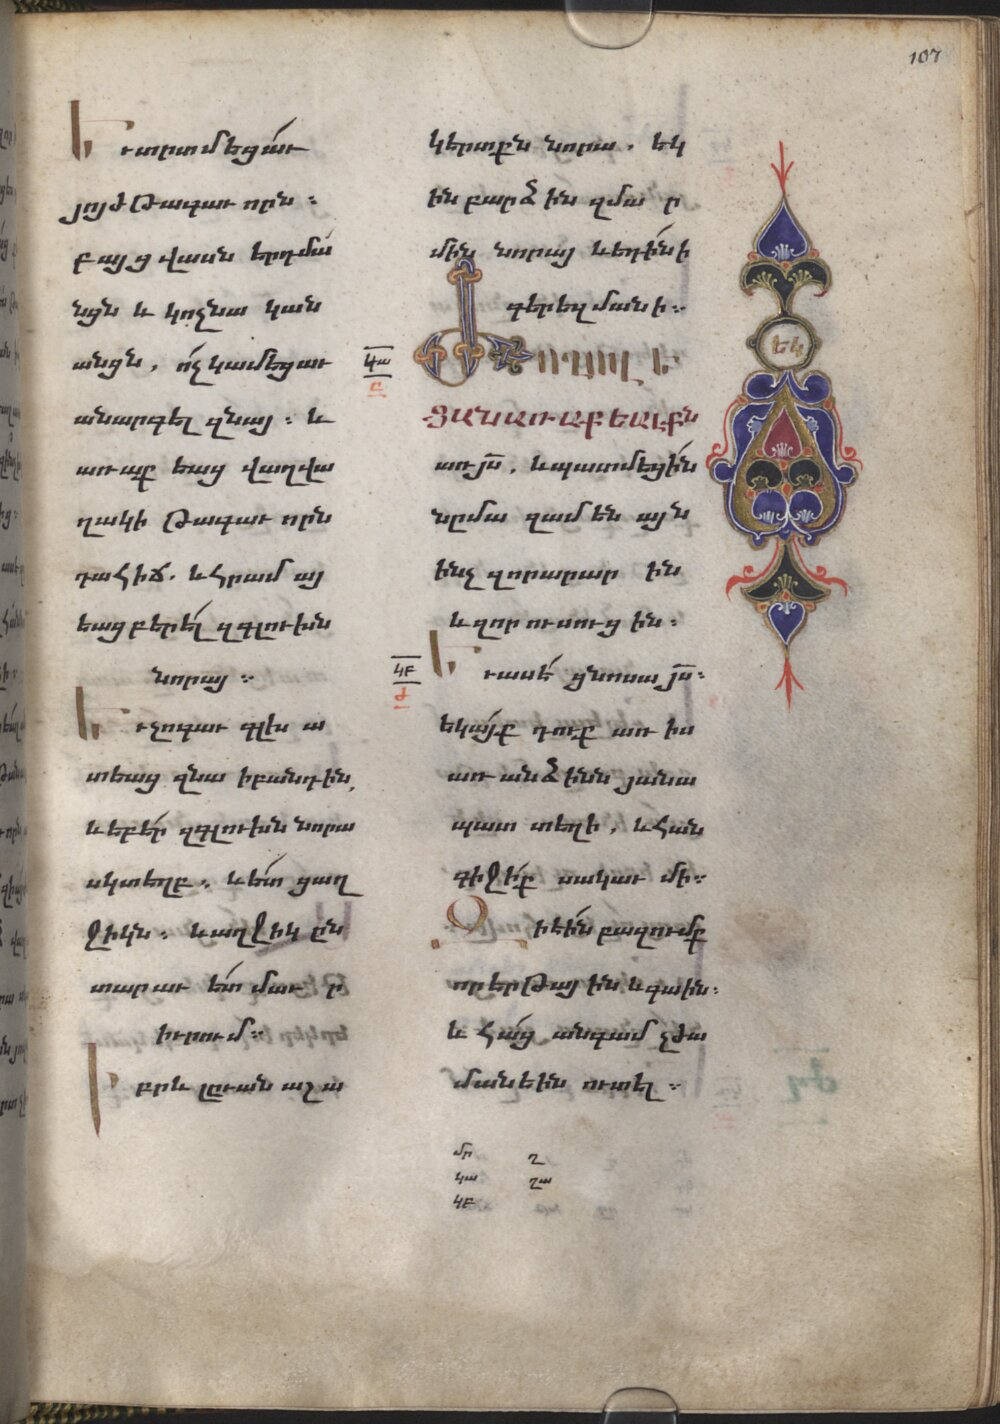 107
Եւ տրտմեցաւ
յոյժ Թագաւորն :
բայց վասն երդմա
նցն և կոչնա կան
անցն , ոչ կամեցաւ
անարգել զնայ : և
առաքեաց վաղվա
ղակի Թագաւորն
դահիճ . և հրամ այ
եաց բերել զգլուխն
նորայ :
Եւ չոգաւ գլխ ա
տեաց զնա ի բանդին ,
և եբեր զգլուխն նորա
սկտեղբ : և ետ ցաղ
ջիկն : և աղջիկ ըն
տարաւ ետ մաւ ր
իւրում :
Իբրև լըւան աշ ա
կերտքն նորա . եկ
ին բարձ ին զմա ր
մին նորայ և եդին ի
գերեզ ման ի :
կա
բ
ԺՈՂՈՎ Ե
ՑԱՆ ԱՌԱՔԵԱԼՔՆ
առ յս , և պատմեցին
նըմա զամ են այն
ինչ զոր արար ին
և զոր ուսուց ին :
կբ
ժ
Եւ ասէ ցնոսա յս :
եկայք դուք առ իս
առանձինն յանա
պատ տեղի , և հան
գիջիք սակաւ մի :
Զի էին բազումք
որ երԹայ ին և գային :
և հաց անգամ չժա
մանէին ուտել :
եկ
մր ղ
կա ղա
կբ